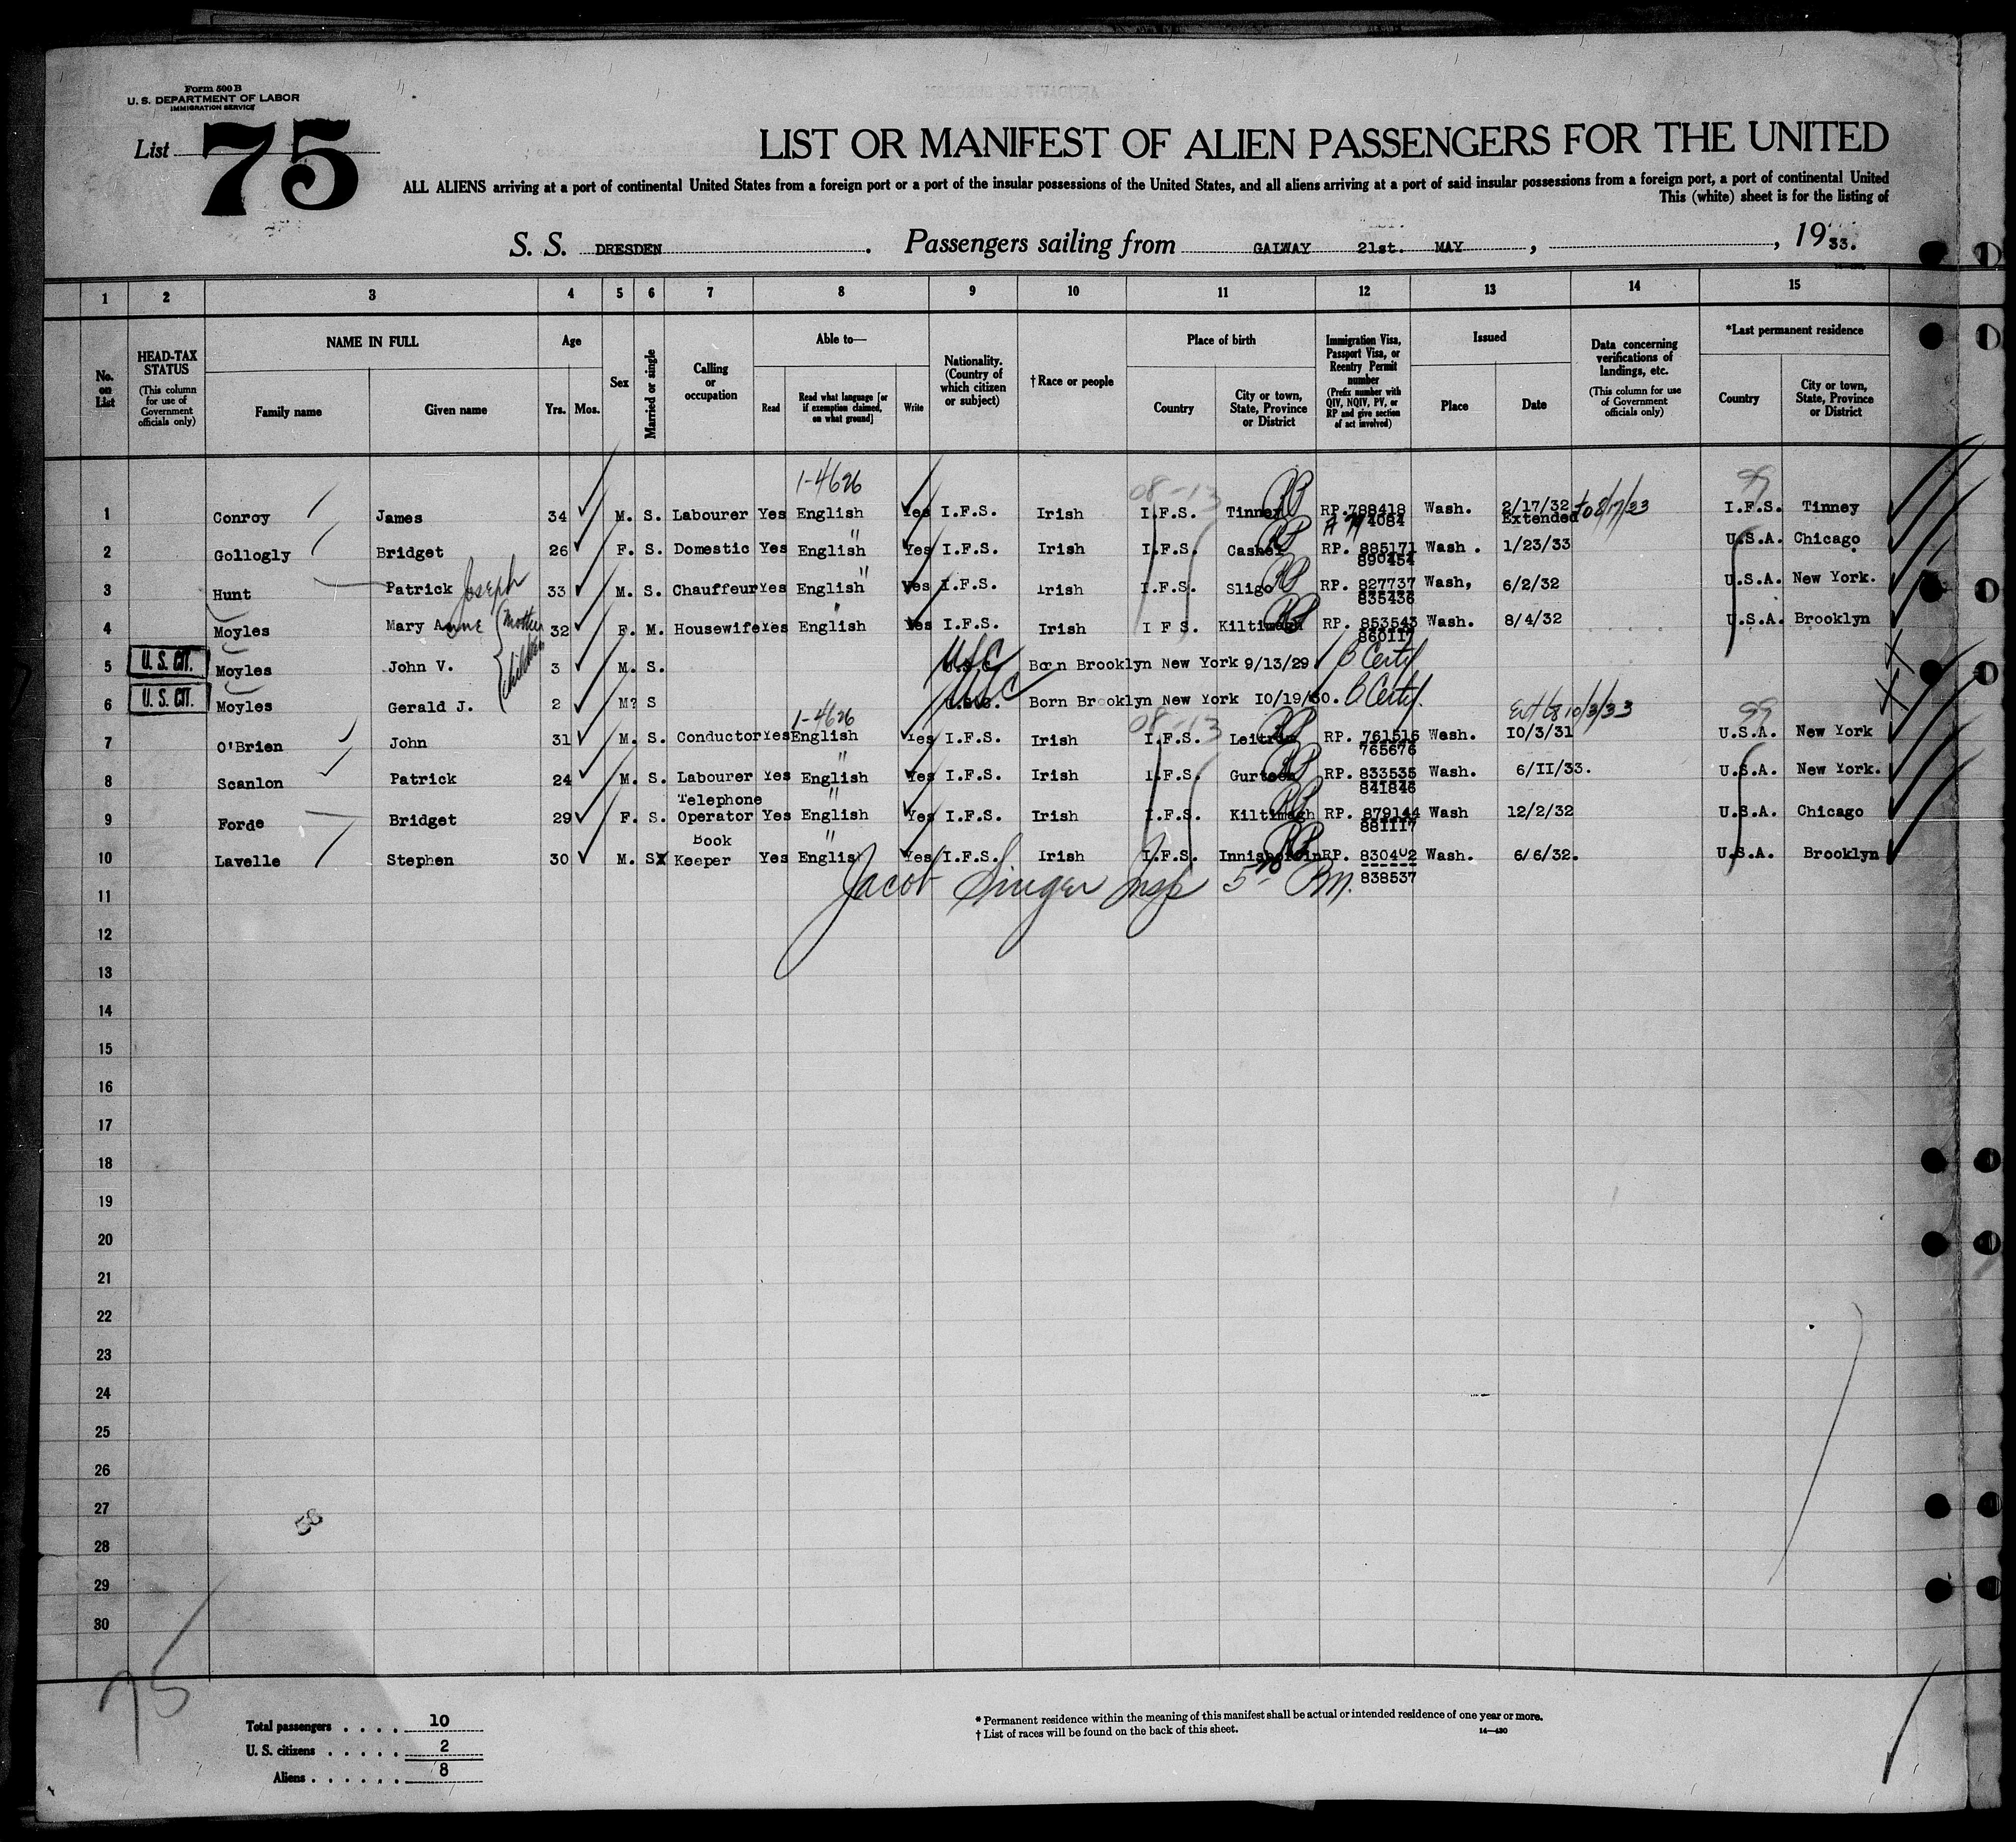 Form 500 B
U. S. DEPARTMENT OF LABOR
IMMIGRATION SERVICE
List 75
LIST OR MANIFEST OF ALIEN PASSENGERS FOR THE UNITED
ALL ALIENS arriving at a port of continental United States from a foreign port or a port of the insular possessions of the United States, and all aliens arriving at a port of said insular possessions from a foreign port, a port of continental United
This (white) sheet is for the listing of
S. S. DRESDEN . Passengers sailing from GALWAY 21st. MAY , , 19 33.
1 2 3 4 5 6 7 8 9 10 11 12 13 14 15
No. on List
HEAD-TAX STATUS
(This column for use of Government officials only)
NAME IN FULL
Family name Given name
Age
Yrs. Mos.
Sex
Married or single
Calling or occupation
Able to—
Read Read what language [or if exemption claimed, on what ground] Write
Nationality. (Country of which citizen or subject)
† Race or people
Place of birth
Country City or town, State, Province or District
Immigration Visa, Passport Visa, or Reentry Permit number
(Prefix number with QIV, NQIV, PV, or RP and give section of act involved)
Issued
Place Date
Data concerning verifications of landings, etc.
(This column for use of Government officials only)
*Last permanent residence
Country City or town, State, Province or District
1-4626 08-13 99
1 Conroy James 34 M. S. Labourer Yes English Yes I.F.S. Irish I.F.S. Tinney RP. 788418 Wash. 2/17/32 to 8/17/33 I.F.S. Tinney
4084 Extended
2 Gollogly Bridget 26 F. S. Domestic Yes English " Yes I.F.S. Irish I.F.S. Cashel RP. 885171 Wash . 1/23/33 U.S.A. Chicago
890454
3 Hunt Patrick Joseph 33 M. S. Chauffeur Yes English " Yes I.F.S. Irish I.F.S. Sligo RP. 827737 Wash, 6/2/32 U.S.A. New York.
835436
4 Moyles Mary Anne Mother 32 F. M. Housewife Yes English " Yes I.F.S. Irish I F S. Kiltimagh RP. 853543 Wash. 8/4/32 U.S.A. Brooklyn
860117
5 U. S. CIT. Moyles John V. children 3 M. S. U.S.C. USC Born Brooklyn New York 9/13/29 B Certf
6 U. S. CIT. Moyles Gerald J. 2 M? S U.S.C. USC Born Brooklyn New York IO/19/30. B Certf.
1-4626 08-13 Ext to 10/3/33 99
7 O'Brien John 31 M. S. Conductor Yes English Yes I.F.S. Irish I.F.S. Leitrim RP. 761516 Wash. IO/3/31 U.S.A. New York
765676
8 Scanlon Patrick 24 M. S. Labourer Yes English " Yes I.F.S. Irish I.F.S. Gurteen RP. 833535 Wash. 6/II/33. U.S.A. New York.
841846
Telephone
9 Forde Bridget 29 F. S. Operator Yes English " Yes I.F.S. Irish I.F.S. Kiltimagh RP. 879144 Wash 12/2/32 U.S.A. Chicago
881117
Book
10 Lavelle Stephen 30 M. S Keeper Yes English " Yes I.F.S. Irish I.F.S. RP. 830402 Wash. 6/6/32. U.S.A. Brooklyn
838537
Jacob Singer Insp
11
12
13
14
15
16
17
18
19
20
21
22
23
24
25
26
27
28
29
30
75
Total passengers . . . . 10
U. S. citizens . . . . . 2
Aliens . . . . . . 8
* Permanent residence within the meaning of this manifest shall be actual or intended residence of one year or more.
† List of races will be found on the back of this sheet.
14—430